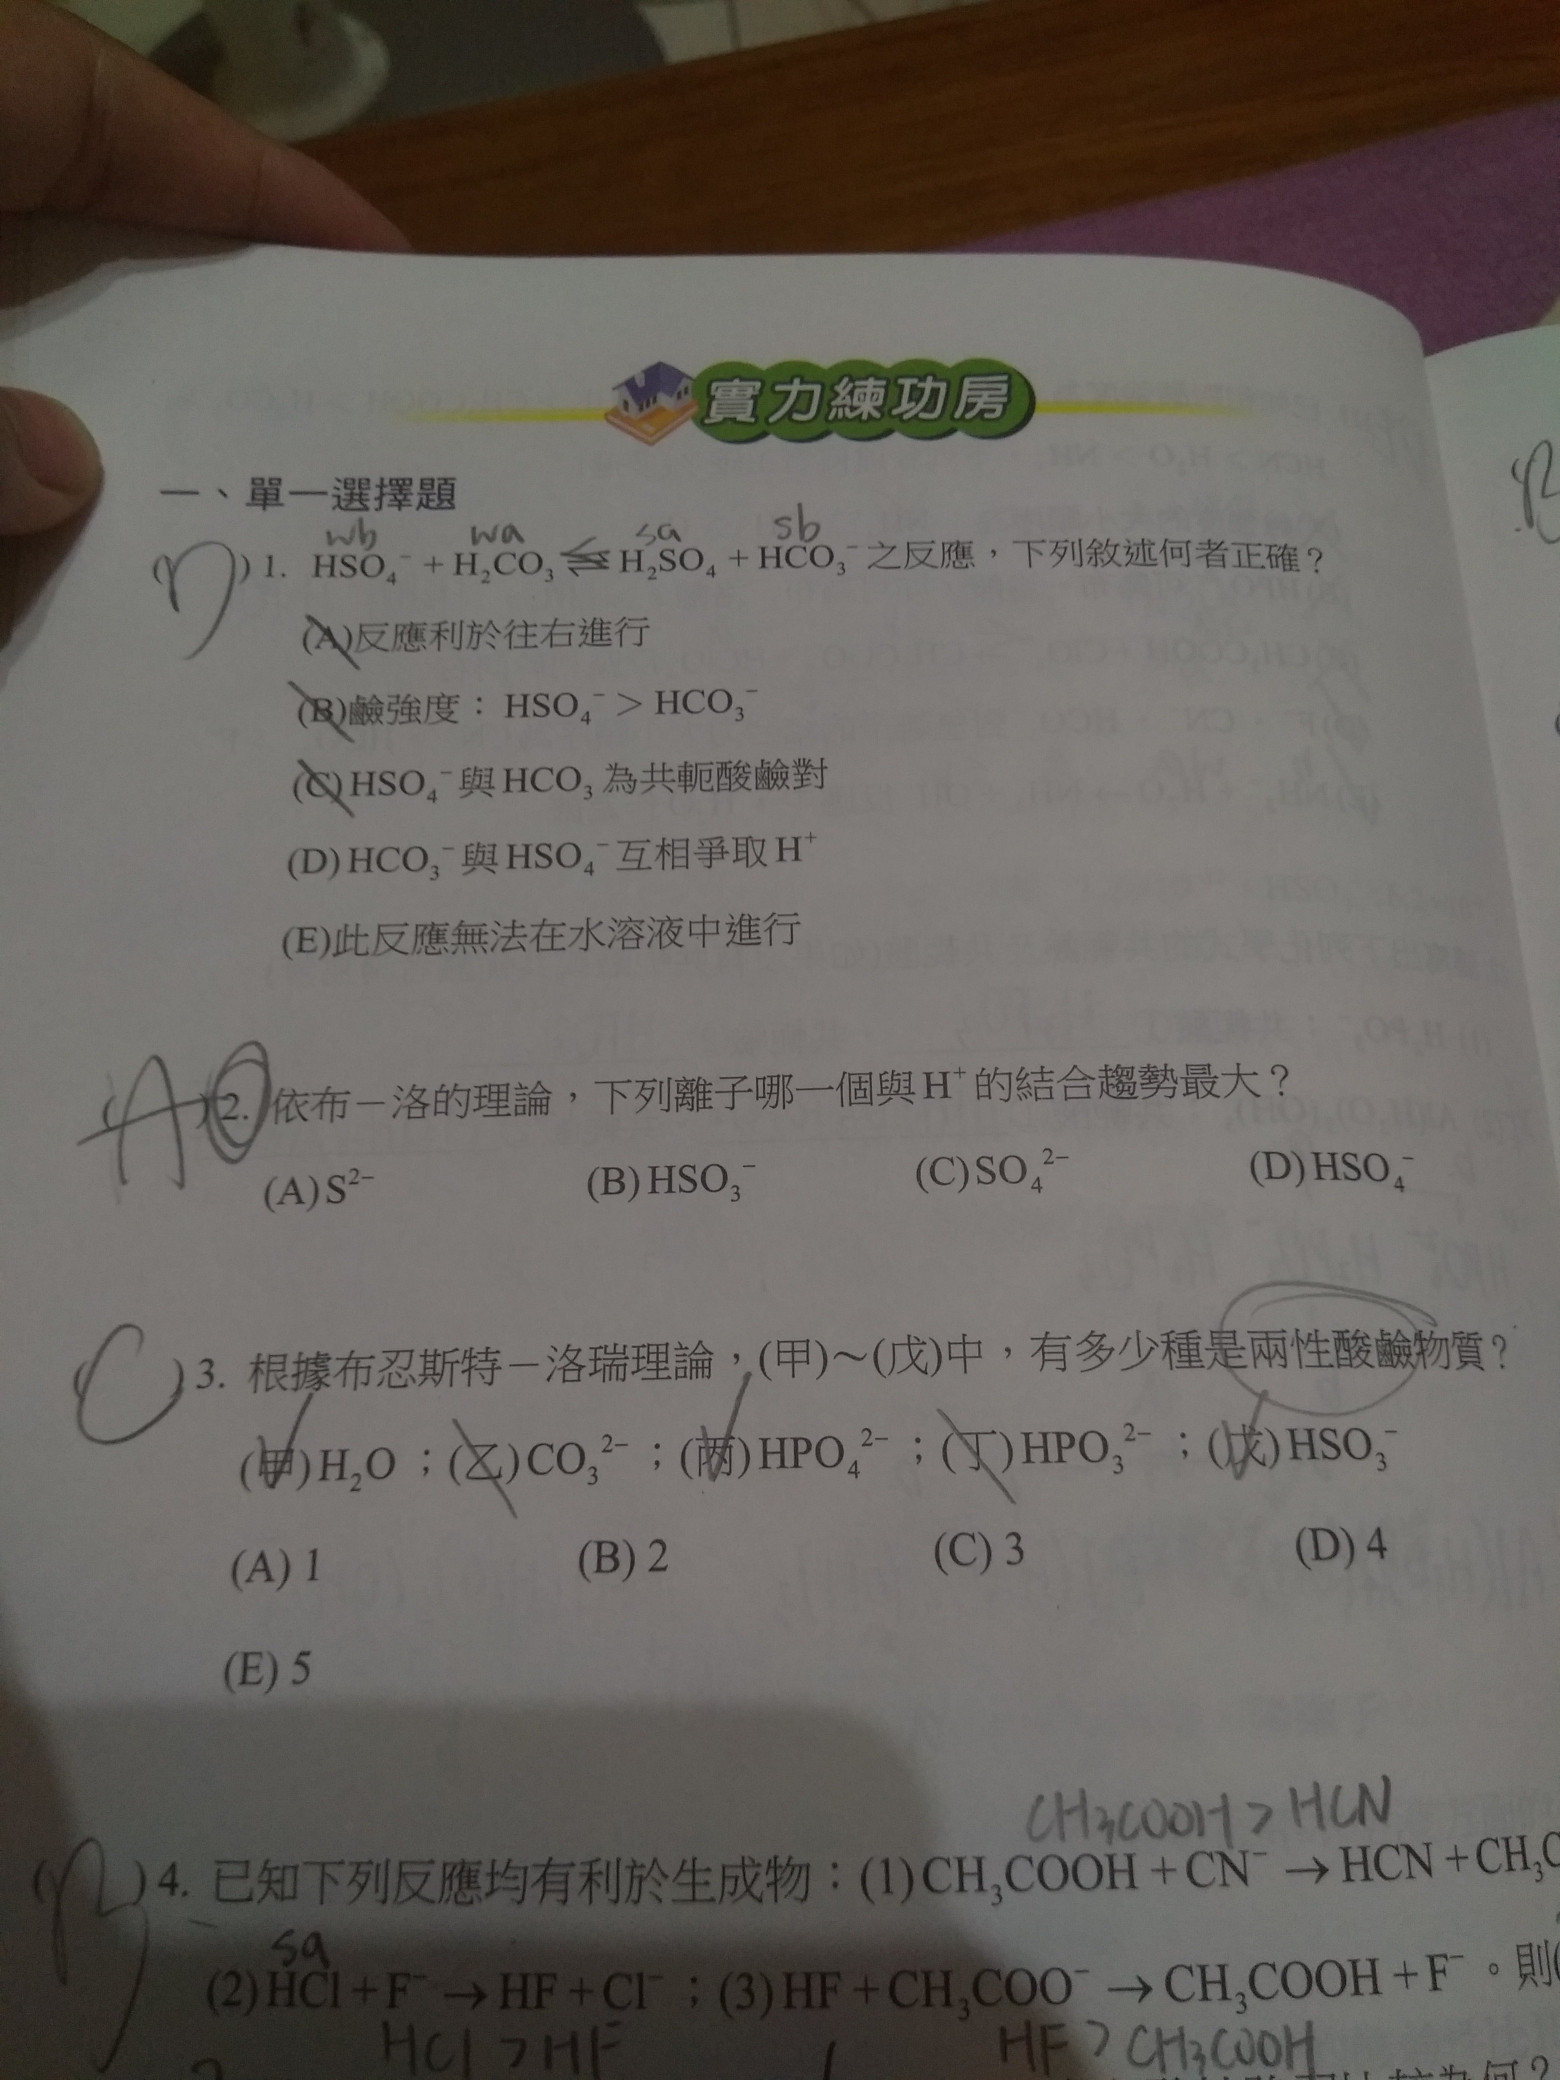 實力練功房
一、單一選擇題
wb wa sa sb
(D) 1. HSO₄⁻ + H₂CO₃ ⇌ H₂SO₄ + HCO₃⁻ 之反應，下列敘述何者正確？
(A)反應利於往右進行
(B)鹼強度： HSO₄⁻ > HCO₃⁻
(C) HSO₄⁻ 與 HCO₃ 為共軛酸鹼對
(D) HCO₃⁻ 與 HSO₄⁻ 互相爭取 H⁺
(E)此反應無法在水溶液中進行
(A) 2. 依布－洛的理論，下列離子哪一個與 H⁺ 的結合趨勢最大？
(A) S²⁻ (B) HSO₃⁻ (C) SO₄²⁻ (D) HSO₄⁻
(C) 3. 根據布忍斯特－洛瑞理論，(甲)～(戊)中，有多少種是兩性酸鹼物質？
(甲) H₂O ；(乙) CO₃²⁻ ；(丙) HPO₄²⁻ ；(丁) HPO₃²⁻ ；(戊) HSO₃⁻
(A) 1 (B) 2 (C) 3 (D) 4
(E) 5
CH₃COOH > HCN
(B) 4. 已知下列反應均有利於生成物：(1) CH₃COOH + CN⁻ → HCN + CH₃C
sa
(2) HCl + F⁻ → HF + Cl⁻ ；(3) HF + CH₃COO⁻ → CH₃COOH + F⁻ 。則
HCl > HF HF > CH₃COOH
為何？